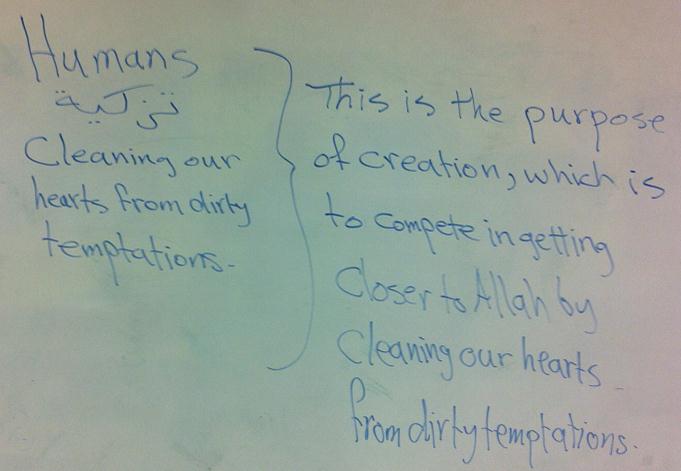 Humans
تزكية
Cleaning our
hearts from dirty
temptations.
This is the purpose
of creation, which is
to compete in getting
Closer to Allah by
Cleaning our hearts
from dirty temptations.